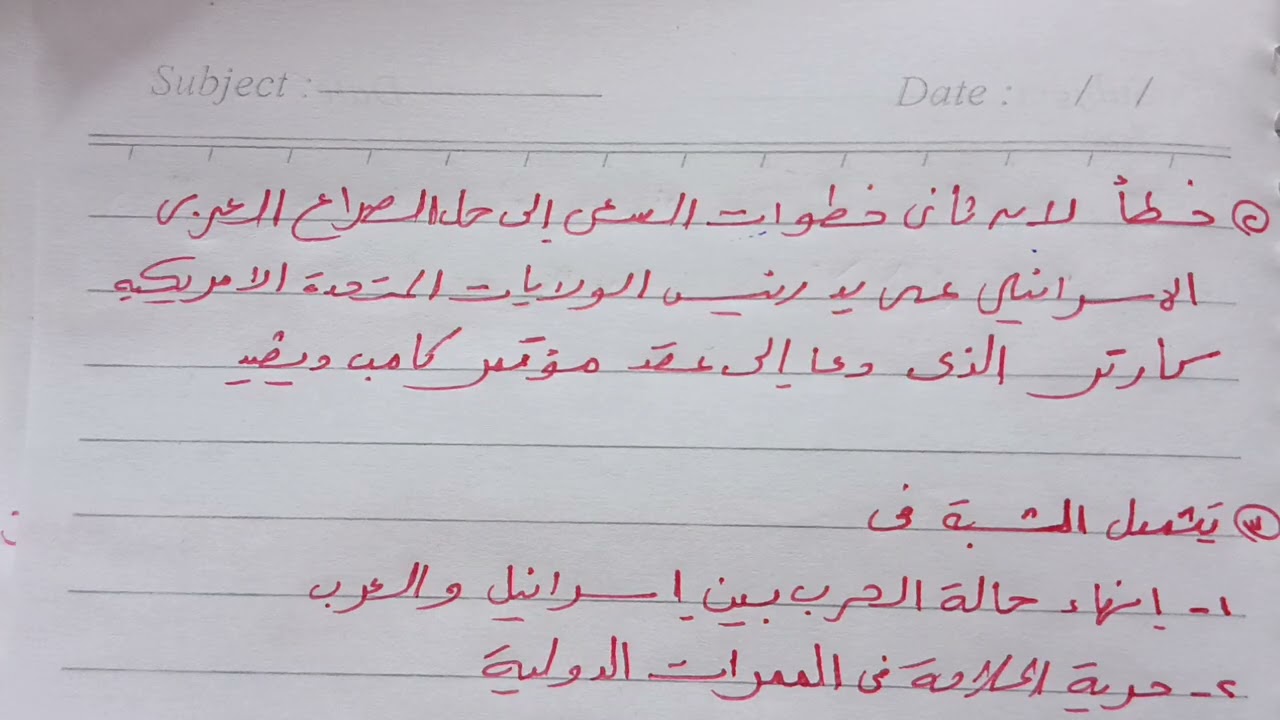 Subject : Date : / /
٢ خطأ لانه ثانى خطوات السعى إلى حل الصراع العربى
الاسرائيلى على يد رئيس الولايات المتحدة الامريكيه
كارتر الذى دعا إلى عقد مؤتمر كامب ديفيد
٣ يتمثل الشبة فى
١- إنهاء حالة الحرب بين إسرائيل والعرب
٢- حرية الملاحة فى الممرات الدولية